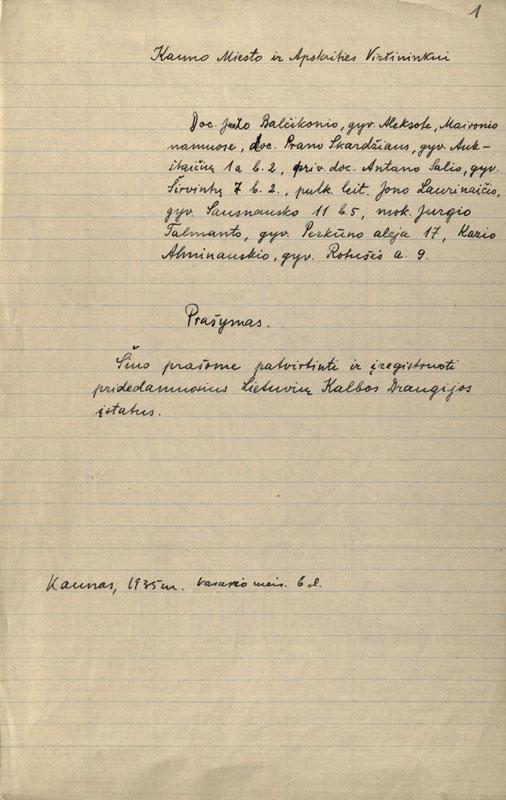 1
Kauno Miesto ir Apskrities Viršininkui
Doc. Juozo Balčikonio, gyv. Aleksote, Maironio
namuose, doc. Prano Skardžiaus, gyv. Auk-
štaičių 1a b. 2, priv. doc. Antano Salio, gyv.
Širvintų 7 b. 2., pulk. leit. Jono Laurinaičio,
gyv. Sasnausko 11 b. 5, mok. Jurgio
Talmanto, gyv. Perkūno alėja 17, Kazio
Alminauskio, gyv. Rotušės a. 9.
Prašymas.
Šiuo prašome patvirtinti ir įregistruoti
pridedamuosius Lietuvių Kalbos Draugijos
įstatus.
Kaunas, 1935 m. vasario mėn. 6 d.